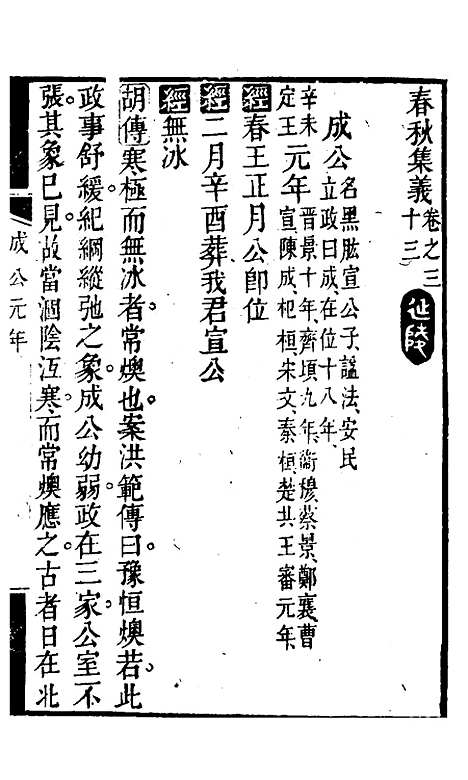 春秋集義卷之三十三
延陵
成公名黑肱宣公子、謚法、安民立政曰成、在位十八年、
辛未定王元年晉景十年、齊頃九年、衛穆、蔡景、鄭襄、曹宣、陳成、杞桓、宋文、秦桓、楚共王審元年、
經春王正月公卽位
經二月辛酉葬我君宣公
經無冰
胡傳寒極而無冰者常燠也案洪範傳曰豫恒燠若此
政事舒緩紀綱縱弛之象成公幼弱政在三家公室不
張其象已見故當涸陰沍寒而常燠應之古者日在北
成公元年